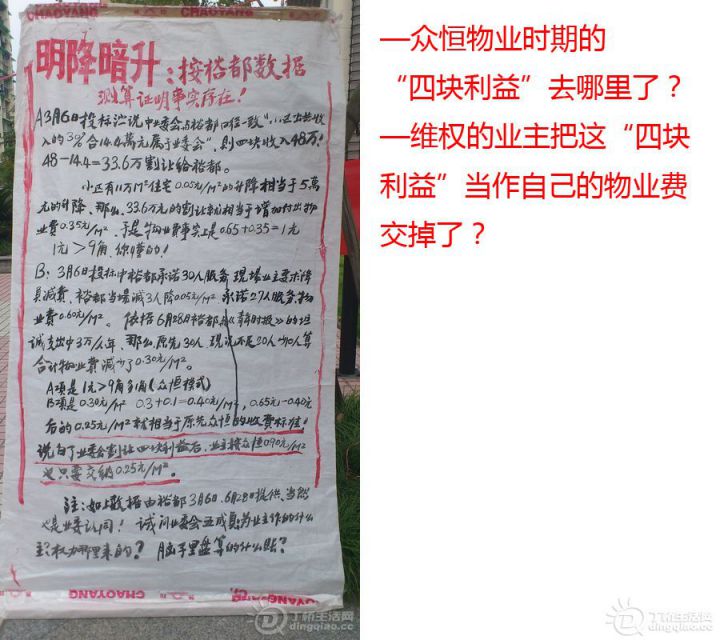 CHAOYANG
明降暗升：按裕都数据
测算证明事实存在！
A3月6日投标泣说中业委会与裕都口径一致"
收入的3%合14.4万元属于业委会"，则四块收入48万！
48-14.4=33.6万割让给裕都。
小区有11万M²住宅0.05元/M²的升降相当于5万
元的升降、那么、33.6万元的割让就相当于增加付出物
业费0.35元/M²、于是物业费事实上是0.65+0.35=1元
1元>9角、你懂的！
B：3月6日投标中裕都承诺30人服务 现场业主要求降
员减费、裕都当场减3人降0.05元/M² 承诺27人服务、物
业费0.60元/M²。 依据6月28日裕都在
诚支出中3万/人年、那么、原先30人、现
合计物业费减少了0.30元/M²。
A项是1元>9角多1角（众恒模式）
B项是0.30元/M² 0.3+0.1=0.40元/M²，0.65元-0.40元
后的0.25元/M²就相当于原先众恒的收费标准！
说白了业委会割让四块利益后、业主按众恒0.90元/M²
也只要交纳0.25元/M²。
注：如上数据由裕都3月6日、6月28日提供、当然
也是业委认同！ 试问业委会五成员为业主作的什么
主？权力哪里来的？ 脑子里盘算的什么账？
CHAOYANG
一众恒物业时期的
“四块利益”去哪里了？
一维权的业主把这“四块
利益”当作自己的物业费
交掉了？
丁桥生活网
dingqiao.cc
丁桥生活网
dingqiao.cc